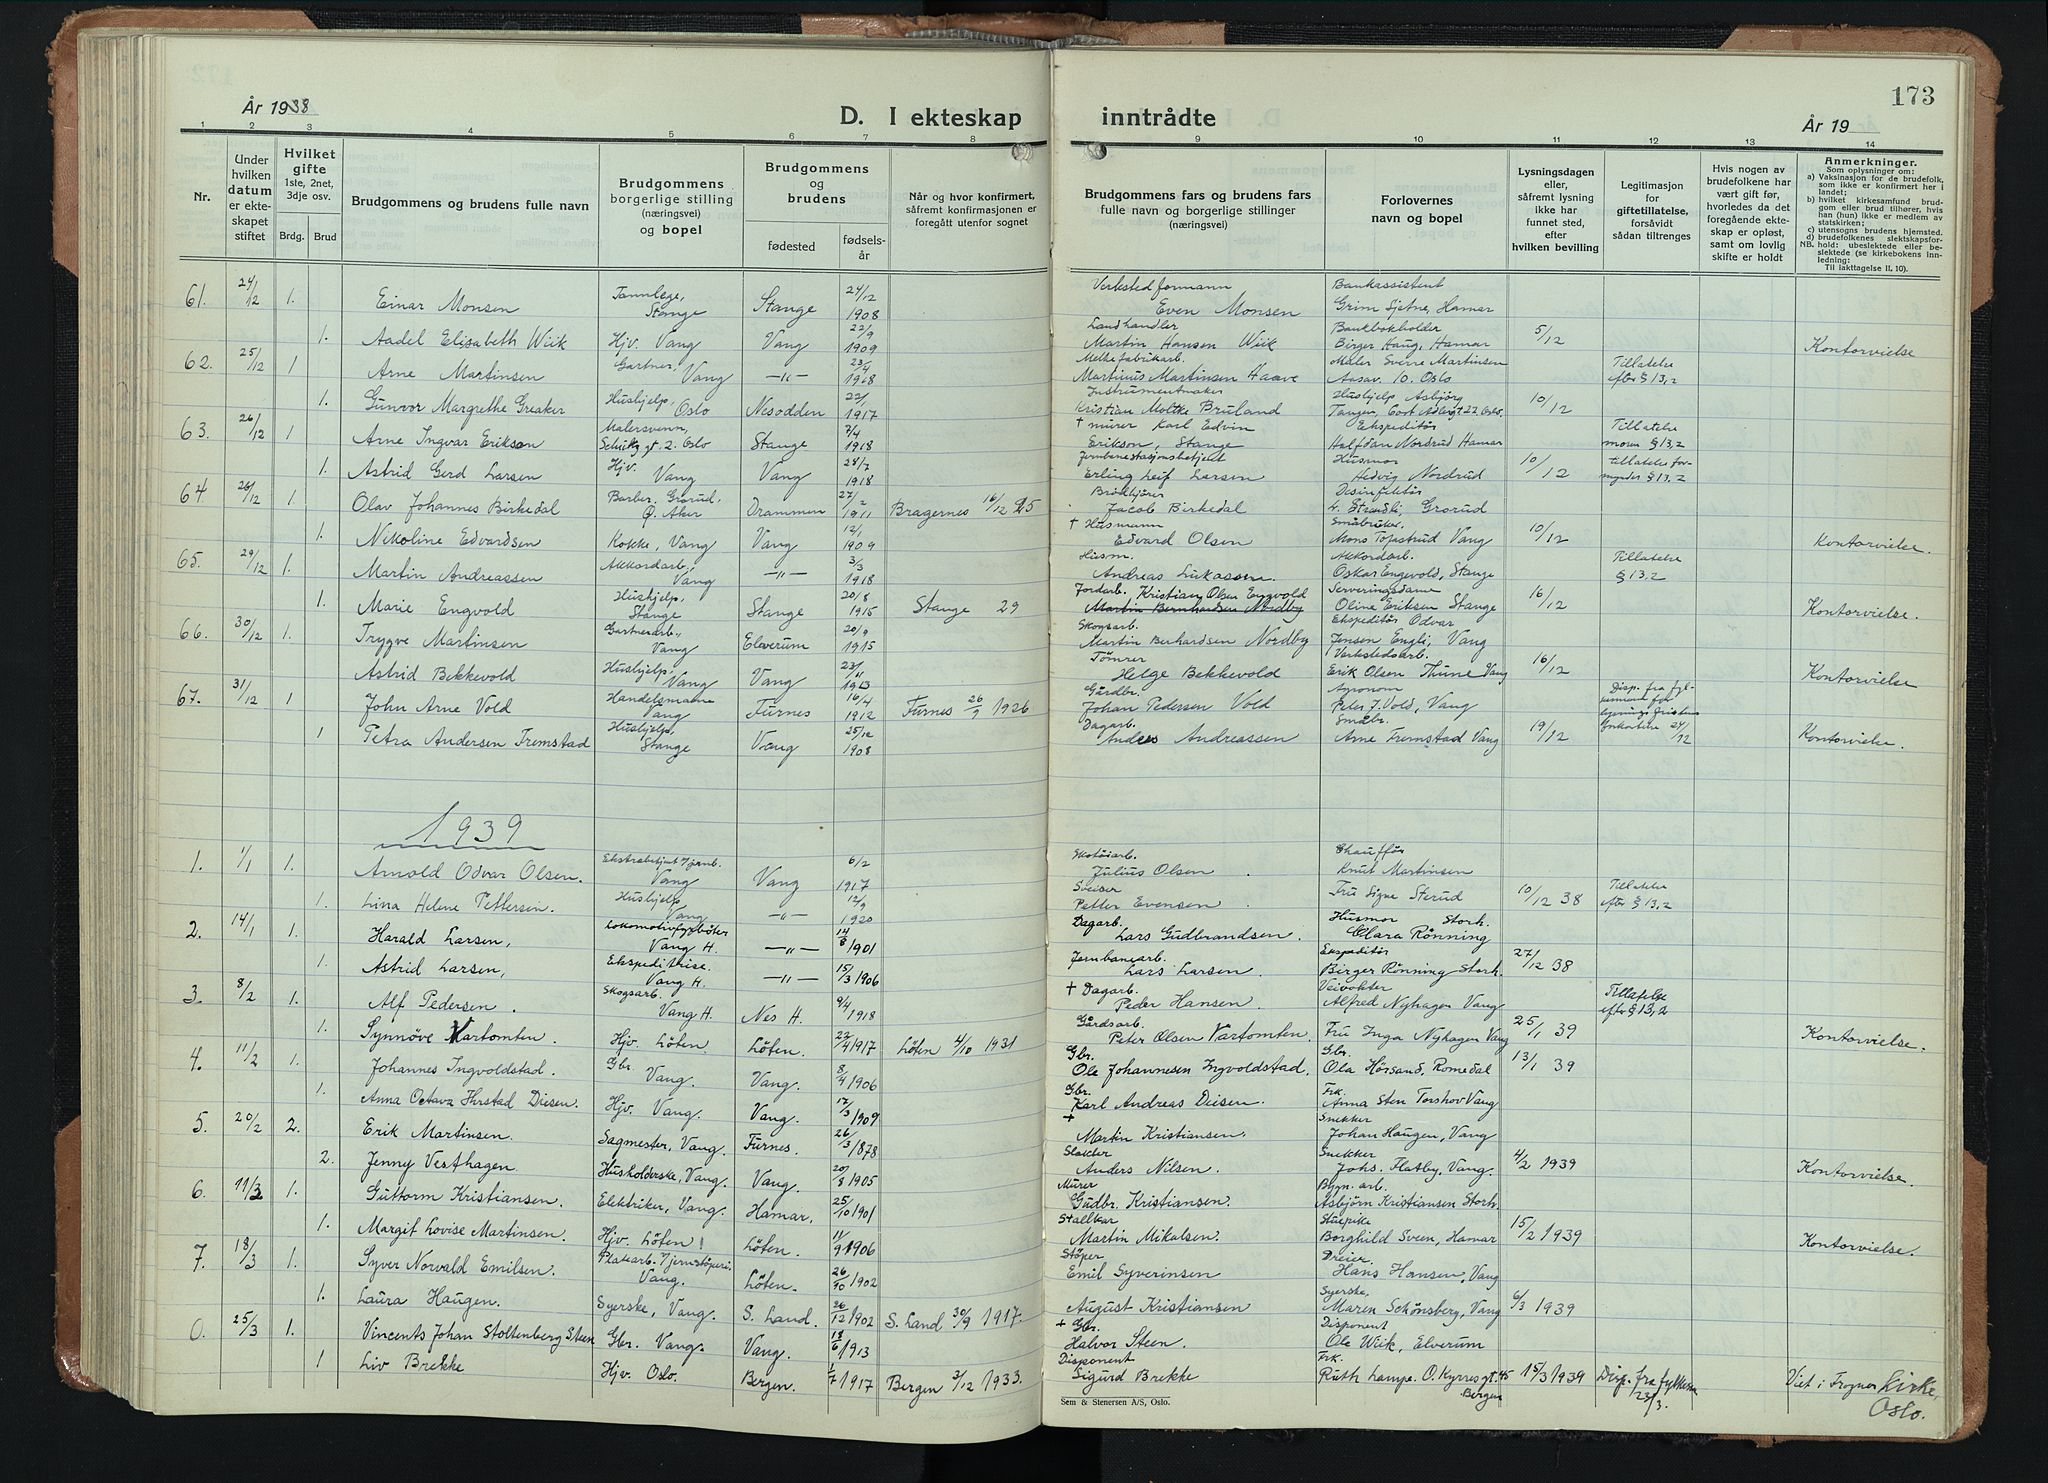 173
År 1938
D. I ekteskap inntrådte
År 19
1 2 3 4 5 6 7 8 9 10 11 12 13 14
Nr.
Under hvilken datum er ekteskapet stiftet
Hvilket gifte 1ste, 2net, 3dje osv.
Brdg. Brud
Brudgommens og brudens fulle navn
Brudgommens borgerlige stilling (næringsvei) og bopel
Brudgommens og brudens
fødested fødselsår
Når og hvor konfirmert, såfremt konfirmasjonen er foregått utenfor sognet
Brudgommens fars og brudens fars fulle navn og borgerlige stillinger (næringsvei)
Forlovernes navn og bopel
Lysningsdagen eller, såfremt lysning ikke har funnet sted, efter hvilken bevilling
Legitimasjon for giftetillatelse, forsåvidt sådan tiltrenges
Hvis nogen av brudefolkene har vært gift før, hvorledes da det foregående ekteskap er opløst, samt om lovlig skifte er holdt
Anmerkninger.
Som oplysninger om:
a) Vaksinasjon for de brudefolk, som ikke er konfirmert her i landet;
b) hvilket kirkesamfund brudgom eller brud tilhører, hvis han (hun) ikke er medlem av statskirken;
c) utensogns brudens hjemsted.
d) brudefolkenes slektskapsforhold: ubeslektede eller beslektede (se kirkebokens innledning:
NB.
Til iakttagelse II. 10).
61. 24/12 1. Einar Monsen Tannlege, Stange Stange 24/12 1908 Verkstedformann Even Monsen Bankassistent Grim Sjetne, Hamar
1. Aadel Elisabeth Wiik Hjv. Vang Vang 22/9 1909 Landhandler Martin Hansen Wiik Bankbokholder Birger Haug, Hamar 5/12 Kontorvielse
62. 25/12 1 Arne Martinsen Gartner, Vang —"— 23/4 1918 Melkefabrikarb. Martinus Martinsen Haave Maler Sverre Martinsen Aasav. 10. Oslo Tillatelse efter § 13,2
1. Gunvor Margrethe Greaker Hushjelp, Oslo Nesodden 22/1 1917 Instrumentmaker Kristian Moltke Bruland Hushjelp Asbjörg Tangen, Cort Adlersgt 22 Oslo. 10/12
63. 26/12 1 Arne Ingvar Erikson Malersvenn, Schultz gt. 2. Oslo Stange 7/4 1918 + murer Karl Edvin Erikson, Stange Ekspeditör Halfdan Nordrud Hamar Tillatelse moren § 13,2
1. Astrid Gerd Larsen Hjv. Vang Vang 28/7 1918 Jernbanestasjonsbetjent Erling Leif Larsen Husmor Hedvig Nordrud 10/12 tillatelse formynder § 13,2
64 26/12 1. Olav Johannes Birkedal Barber, Grorud, Ö. Aker Drammen 27/2 1911 Bragernes 16/12 25 Jacob Birkedal Desinfektör Grorud
1. Nikoline Edvardsen Kokke, Vang Vang 12/1 1909 + Husmann Edvard Olsen Småbruker. Mons Topstrud Vang 10/12 Kontorvielse.
65. 29/12 1. Martin Andreassen Akkordarb., Vang —"— 3/3 1918 Husm. Andreas Lukassen. Akkordarb. Oskar Engevold, Stange Tillatelse § 13,2
1. Marie Engvold Hushjelp, Stange Stange 20/8 1915 Stange 29 Jordarb. Kristian Olsen Engvold Martin Bernhardsen Nordby Serveringsdame Oline Eriksen Stange 16/12 Kontorvielse.
66. 30/12 1. Trygve Martinsen Gartnerarb., Vang Elverum 20/9 1915 Skogsarb. Martin Berhardsen Nordby Ekspeditör Odvar Jensen Engli, Vang
Astrid Bekkevold Hushjelp, Vang Vang 23/11 1913 Tömrer Helge Bekkevold Verkstedsarb. Erik Olsen Thune Vang 16/12 Kontorvielse
67. 31/12 1 John Arne Vold Handelsmann Vang Furnes 16/4 1912 Furnes 26/9 1926 Gårdbr. Johan Pedersen Vold Agronom Peter J. Vold, Vang Disp. fra fylkesmannen for lysningsfristen
1 Petra Andersen Fremstad Hushjelp, Stange Vang 25/12 1908 Dagarb. Andres Andreassen Småbr. Arne Fremstad Vang 19/12 24/12 Kontorvielse.
1939
1. 1/1 1. Arnold Odvar Olsen. Ekstrabetjent v/jernb. Vang Vang 6/2 1917 Skotöiarb. Julius Olsen. Chaufför Knut Martinsen
1. Lina Helene Pettersen. Hushjelp Vang —"— 12/9 1920 Sveiser Petter Evensen Fru Signe Sterud 10/12 38 Tillatelse efter § 13,2
2. 14/1 1. Harald Larsen, Lokomotivfyrböter Vang H. —"— 14/8 1901 Dagarb. Lars Gudbrandsen. Husmor Storh. Clara Rönning
1. Astrid Larsen, Ekspeditrise. Vang H. —"— 15/3 1906 Jernbanearb. Lars Larsen. Ekspeditör Birger Rönning Storh. 27/12 38
3. 8/2 1. Alf Pedersen. Skogsarb. Vang H. Nes H. 9/4 1918 + Dagarb. Peder Hansen. Veivokter Alfred Nyhagen Vang Tillatelse efter § 13,2
1. Synnöve Vartomten. Hjv. Löten. Löten. 22/4 1917 Löten 4/10 1931 Gårdsarb. Peter Olsen Vartomten. Fru Inga Nyhagen Vang 25/1 39 Kontorvielse.
4. 11/2 1. Johannes Ingvoldstad. Gbr. Vang. Vang. 8/4 1906 Gbr. Ole Johannesen Ingvoldstad. Gbr. Ola Hörsand, Romedal 13/1 39
1. Anna Octava Hurstad Diesen. Hjv. Vang. Vang. 17/3 1909 Gbr. Karl Andreas Deisen. Frk. Anna Sten Torshov Vang
5. 20/2 2. Erik Martinsen. Sagmester, Vang. Furnes. 26/3 1878 + Martin Kristiansen. Snekker Johan Haugen, Vang
2. Jenny Vesthagen. Husholderske, Vang. Vang. 20/8 1905 Slakter Anders Nilsen. Snekker Johs. Flatby, Vang. 4/2 1939 Kontorvielse.
6. 11/3 1. Guttorm Kristiansen. Elektriker, Vang. Hamar. 25/10 1901 Murer Gudbr. Kristiansen. Bygn. arb. Asbjörn Kristiansen Storh.
1. Margit Lovise Martinsen. Hjv. Löten! Löten. 11/9 1906 Stallkar Martin Mikalsen. Stuepike Borghild Sveen, Hamar 15/2 1939 Kontorvielse.
7. 18/3 1. Syver Norvald Emilsen. Platearb. v/jernstöperi. Vang. Löten. 26/10 1902 Stöper Emil Syverinsen Dreier. Hans Hansen, Vang
1. Laura Haugen. Syerske, Vang. S. Land. 26/12 1902 S. Land 30/9 1917. August Kristiansen Syerske, Maren Schönsberg, Vang 6/3 1939
0. 25/3 1. Vincents Johan Stoltenberg Steen Gbr. Vang. Vang. 18/6 1913 + Gbr. Halvor Steen. Disponent Ole Wiik, Elverum
1 Liv Brekke Hjv. Oslo. Bergen. 1/7 1917 Bergen 3/12 1933. Disponent Sigurd Brekke Frk. Ruth Lampe. O. Kyrres gt. 45 Bergen 15/3 1939 Disp. fra fylkesm 23/3. Viet i Frogner Kirke, Oslo.
Sem & Stenersen A/S, Oslo.